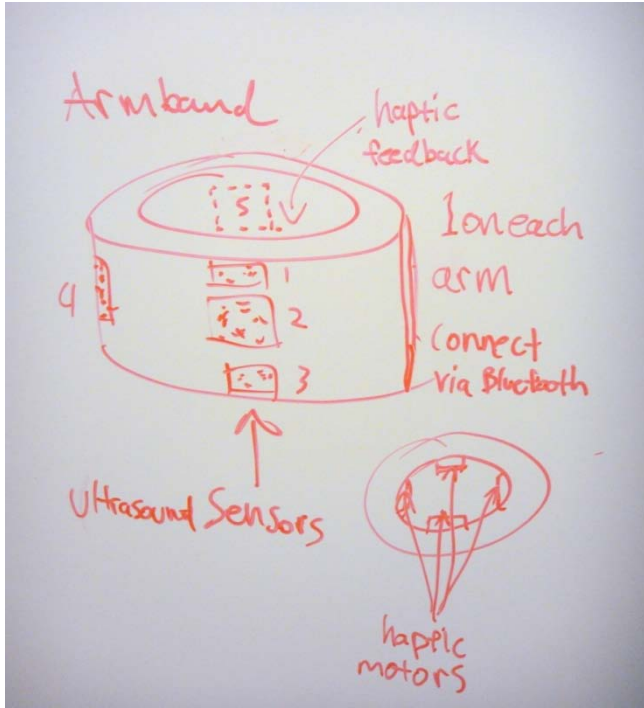 Armband
haptic
feedback
5
1 on each
arm
1
4
2
Connect
via Bluetooth
3
Ultrasound Sensors
haptic
motors